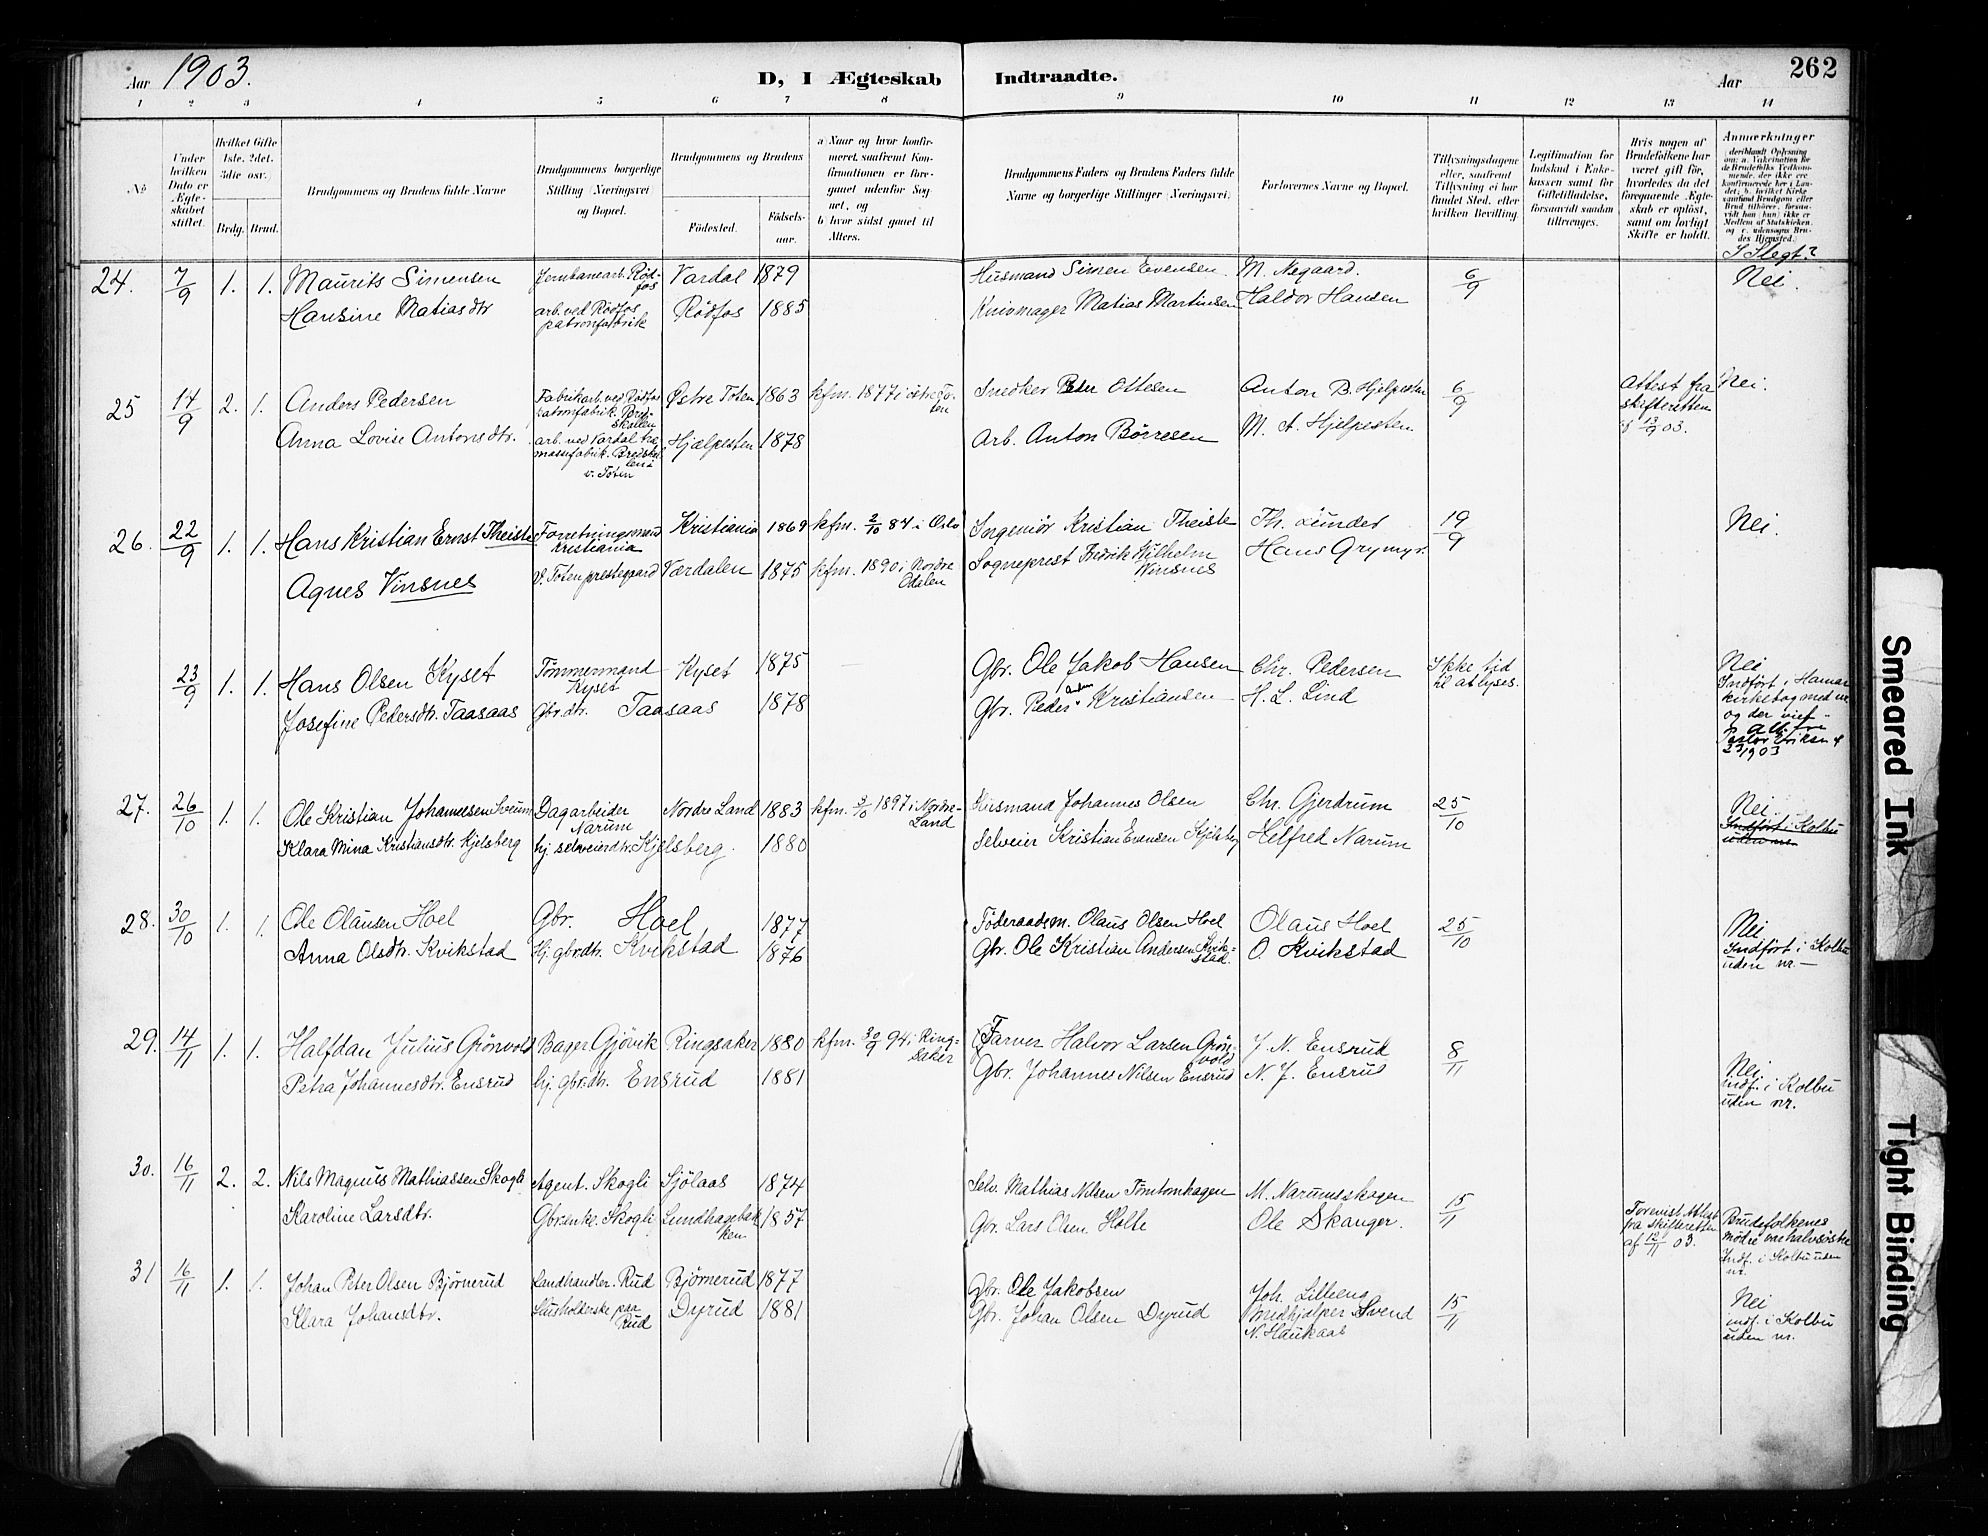 Aar 1903.
D, I Ægteskab Indtraadte.
Aar
262
1 2 3 4 5 6 7 8 9 10 11 12 13 14
No
Under hvilken Dato er Ægteskabet stiftet.
Hvilket Gifte 1ste. 2det. 3die osv.
Brdg. Brud.
Brudgommens og Brudens fulde Navne
Brudgommens borgerlige Stilling (Næringsvei) og Bopæl.
Brudgommens og Brudens
Fødested.
Fødselsaar.
a) Naar og hvor konfirmeret, saafremt Konfirmationen er foregaaet udenfor Sognet, og
b) hvor sidst gaaet til Alters.
Brudgommens Faders og Brudens Faders fulde Navne og borgerlige Stillinger (Næringsvei).
Forlovernes Navne og Bopæl.
Tillysningsdagene eller, saafremt Tillysning ei har fundet Sted, efter hvilken Bevilling.
Legitimation for Indskud i Enkekassen samt for Giftetilladelse, forsaavidt saadan tiltrænges.
Hvis nogen af Brudefolkene har været gift før, hvorledes da det foregaaende Ægteskab er opløst, samt om lovligt Skifte er holdt.
Anmærkninger
(deriblandt Oplysning om: a. Vakcination for de Brudefolks Vedkommende, der ikke ere konfirmerede her i Landet; b. hvilket Kirkesamfund Brudgom eller Brud tilhører, forsaavidt han (hun) ikke er Medlem af Statskirken, og c. udensogns Brudes Hjemsted.)
I Slegt?
24. 7/9 1. 1. Maurits Simensen Jernbanearb. Rødfos Vardal 1879 Husmand Simen Evensen M. Negaard. 6/9 Nei.
Hansine Matiasdtr arb. ved Rødfos patronfabrik Rödfos 1885 Knivmager Matias Martinsen Haldor Hansen
25 14/9 2. 1. Anders Pedersen Fabrikarb. ved Rødfos patronfabrik. Østre Toten 1863 kfm. 1877 i østre Toten Snedker Peter Ottesen Anton B. Hjelpesten 6/9 Attest fra skifteretten af 12/9 03. Nei.
Anna Lovise Antonsdtr. arb. ved Vardal træmassefabrik. v. Toten Hjælpesten 1878 Arb. Anton Börresen M. A. Hjelpesten
26. 22/9 1. 1. Hans Kristian Ernst Theiste Forretningsmand Kristiania Kristiania 1869 kfm. 2/10 84 i Oslo Ingeniör Kristian Theiste Th. Lunder 19/9 Nei.
Agnes Vinsnes V. Toten prestegaard Værdalen 1875 kfm. 1890 i Nordre Odalen Sogneprest Fredrik Wilhelm Winsnes Hans Grymyr.
23/9 1. 1. Hans Olsen Kyset Tömmermand Kyset Kyset 1875 Gbr. Ole Jakob Hansen Chr. Pedersen Ikke tid til at lyses. Nei
Josefine Pedersdtr. Taasaas Gbr.dtr. Taasaas 1878 Gbr. Peder Kristiansen H. L. Lind Indfört i Hamar kirkebog med nr og der viet
Pastor Eriksen
1903
27. 26/10 1. 1. Ole Kristian Johannessen Sveum Dagarbeider Narum Nordre Land 1883 kfm. 3/10 1897 i Nordre-Land Husmand Johannes Olsen Chr. Gjerdrum 25/10 Nei
Klara Mina Kristiansdtr. Kjelsberg hj. selveierdtr. Kjelsberg. 1880 Selveier Kristian Evensen Kjelsberg Helfred Narum Indfört i Kolbu uden nr.
28. 30/10 1. 1. Ole Olausen Hoel Gbr. Hoel 1877 Föderaadsm. Olaus Olsen Hoel Olaus Hoel 25/10 Nei
Anna Olsdtr. Kvikstad Hj. gbr.dtr. Kvikstad 1876 Gbr. Ole Kristian Andersen Kvikstad. O. Kvikstad Indfört i Kolbu uden nr. —
29. 14/11 1. 1. Halfdan Julius Grönvold Bager Gjövik Ringsaker 1880 kfm. 30/9 94 i Ringsaker Farver Halvor Larsen Grönvold J. N. Ensrud 8/11 Nei.
Petra Johannesdtr. Ensrud hj. gbr.dtr. Ensrud 1881 Gbr. Johannes Nilsen Ensrud N. J. Ensrud indf. i Kolbu uden nr.
30. 16/11 2. 2. Nils Magnus Mathiassen Skogli Agent. Skogli Sjölaas 1874 Selv. Mathias Nilsen Tömtomhagen M. Narumsskogen 15/11 Forevist Attest fra skifteretten af 12/11 03. Brudefolkenes mødre ere halvsöstre
Karoline Larsdtr. Gbr.enke. Skogli Lundhagebakken 1857 Gbr. Lars Olsen Holte Ole Skanger. Indf. i Kolbu uden nr.
31 16/11 1. 1. Johan Peter Olsen Björnerud Landhandler. Rud Björnerud 1877 Gbr. Ole Jakobsen Joh. Lilleeng 15/11 Nei
Klara Johansdtr. Husholderske paa Rud Dyrud 1881 Gbr. Johan Olsen Dyrud medhjælper Svend N. Haukaas indf. i Kolbu uden nr.
Smeared Ink
Tight Binding